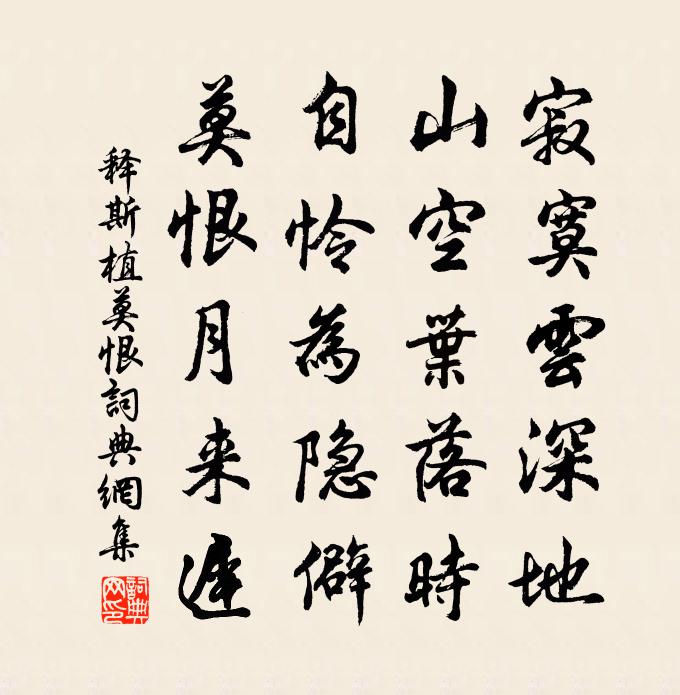 寂寞雲深地
山空葉落時
自怜為隐僻
莫恨月来遲
释斯植莫恨詞典網集
詞典網印